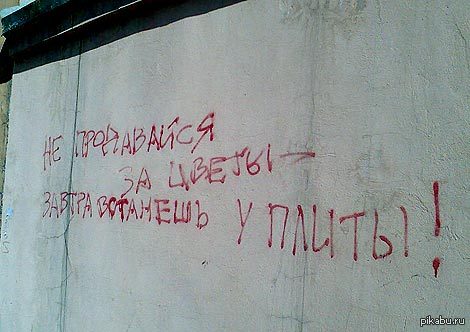 НЕ ПРОДАВАЙСЯ
ЗА ЦВЕТЫ –
ЗАВТРА ВСТАНЕШЬ У ПЛИТЫ!
pikabu.ru